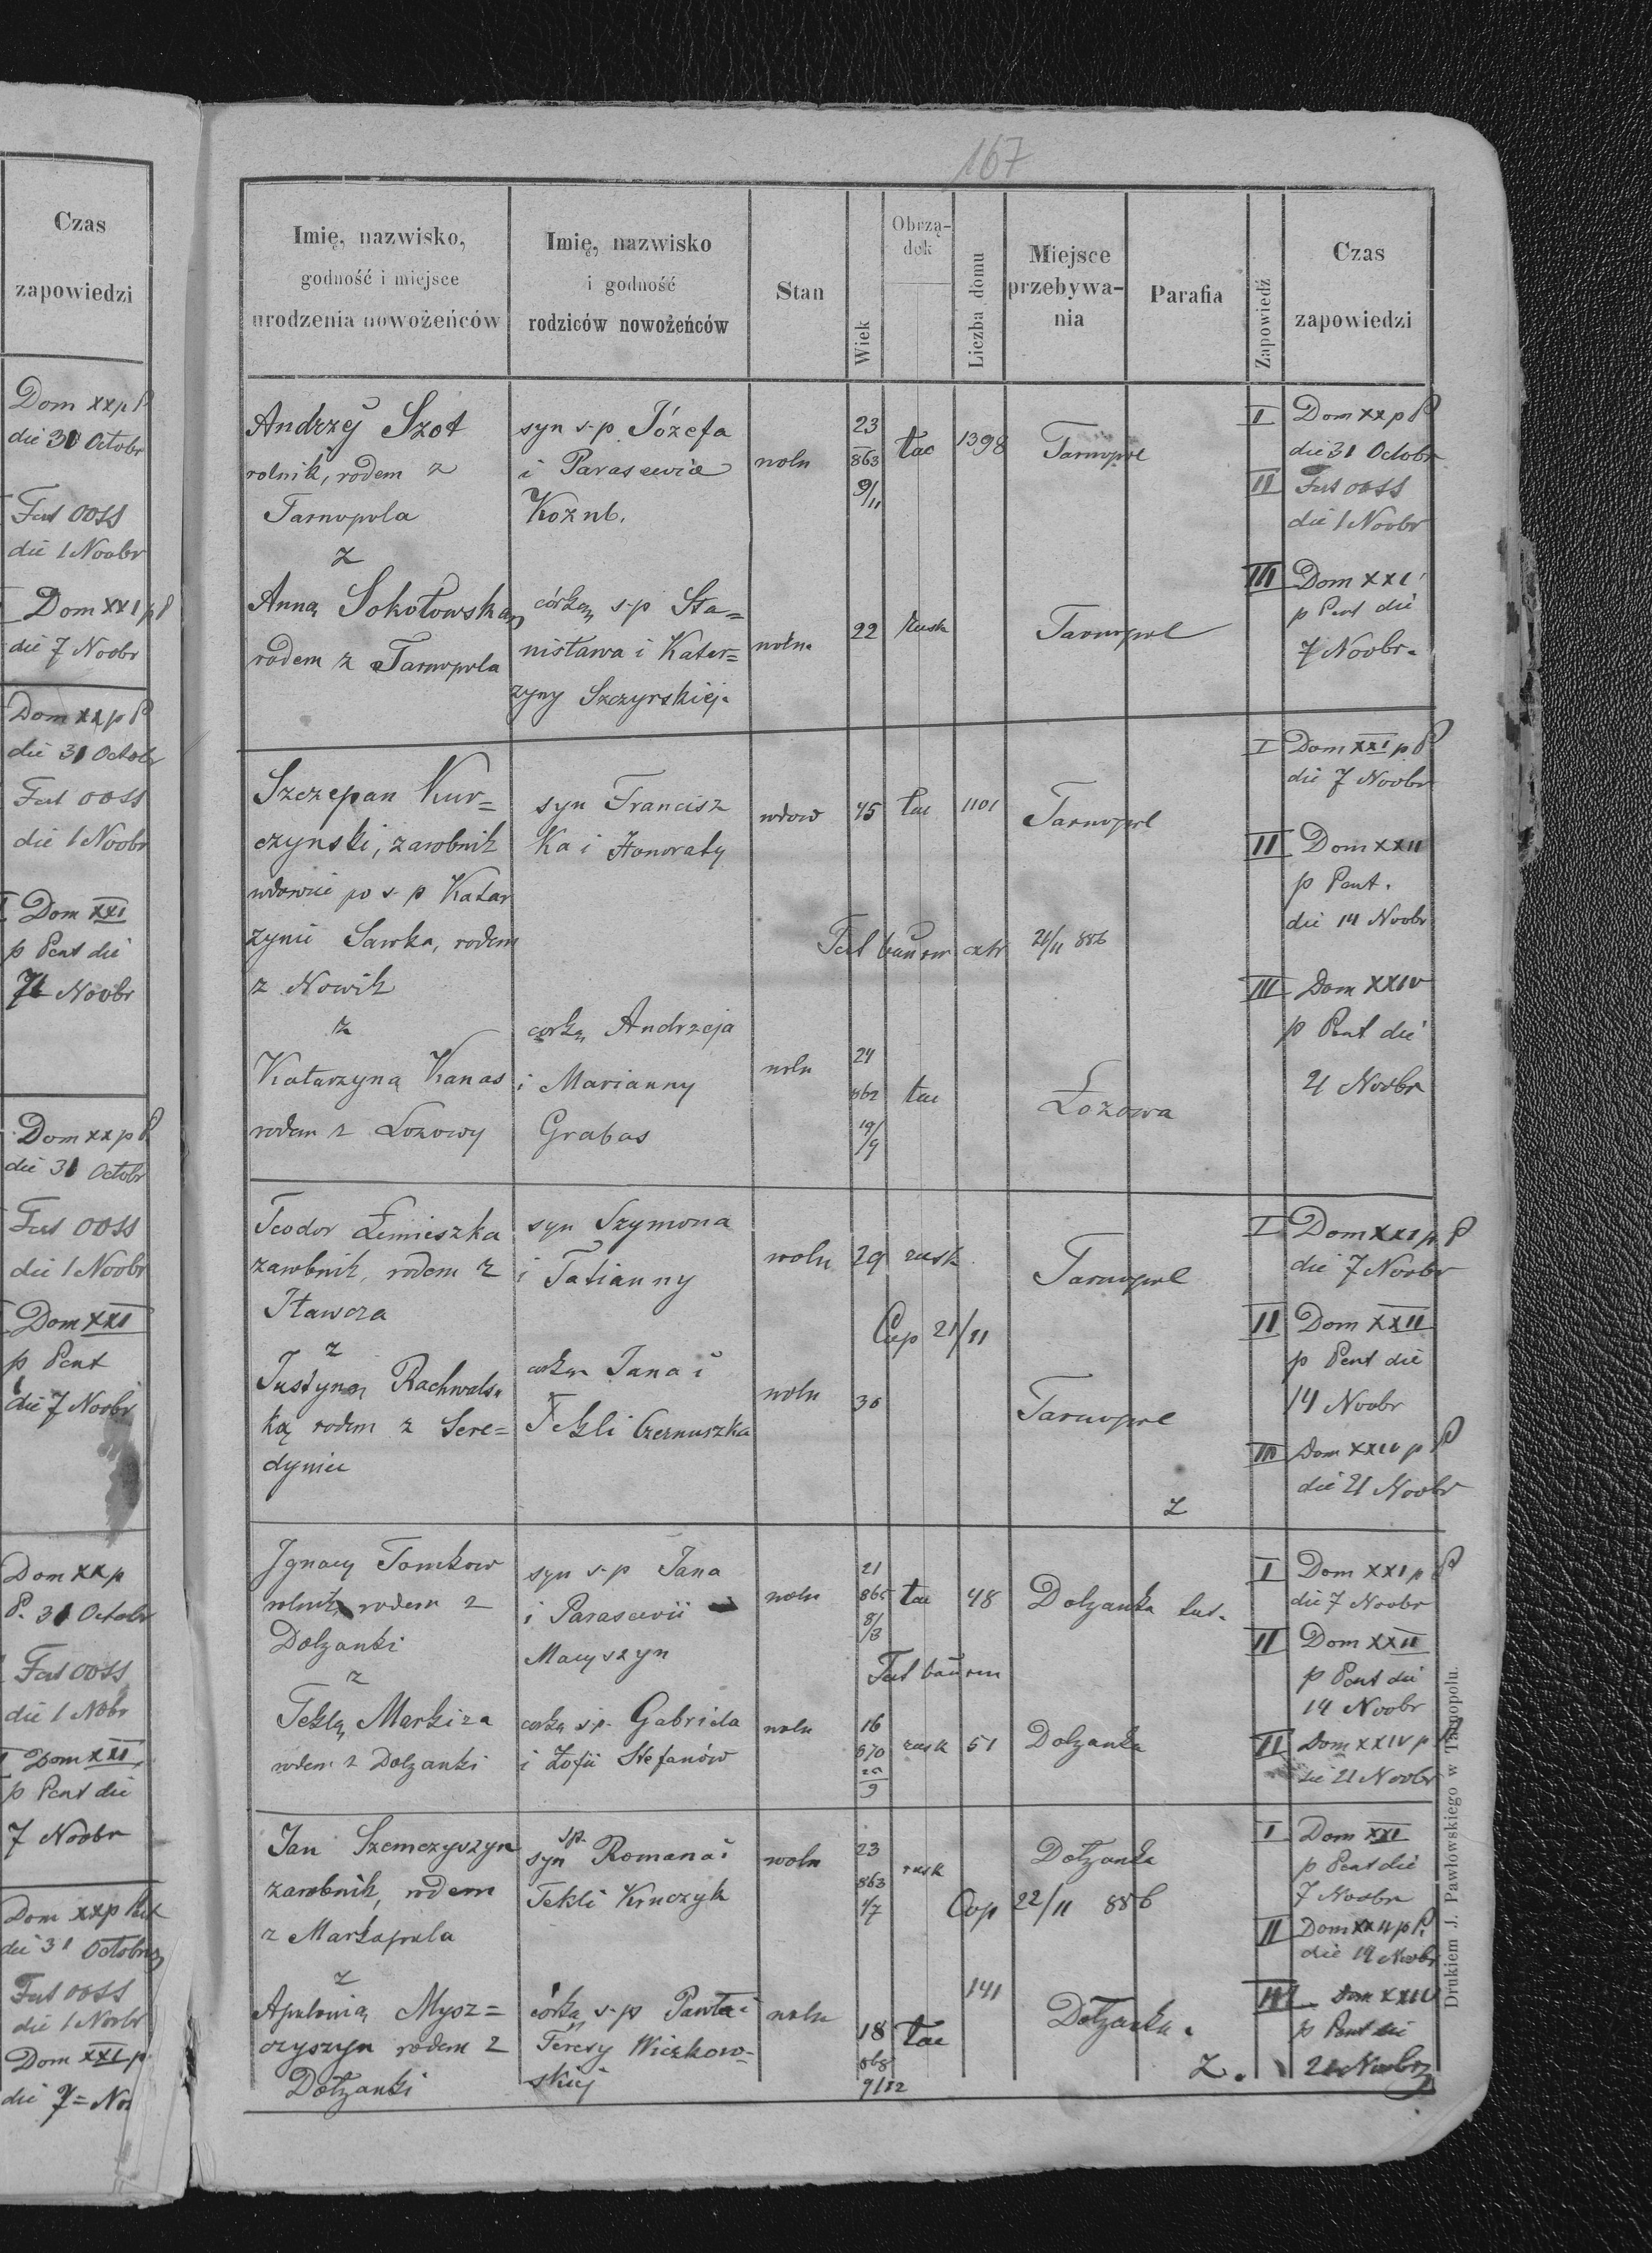 Czas
zapowiedzi
Dom XX p P
die 31 Octobr
Fest OOSS
die 1 Noobr
Dom XXI p P
die 7 Noobr
Dom XX p P
die 31 Octobr
Fest OOSS
die 1 Noobr
Dom XXI
p Pent die
7 Noobr
Dom XX p P
die 31 Octobr
Fest OOSS
die 1 Noobr
Dom XXI
p Pent
die 7 Noobr
Dom XX p
P. 31 Octobr
Fest OOSS
die 1 Nobr
Dom XXI
p Pent die
7 Noobr
Dom XX p Pent
die 31 Octobr
Fest OOSS
die 1 Noobr
Dom XXI p
die 7 = No
167
Imię, nazwisko,
godność i miejsce
urodzenia nowożeńców
Imię, nazwisko
i godność
rodziców nowożeńców
Stan
Wiek
Obrzą-
dek
Liczba domu
Miejsce
przebywa-
nia
Parafia
Zapowiedź
Czas
zapowiedzi
Andrzej Szot
rolnik, rodem z
Tarnopola
z
Anną Sokołowską
rodem z Tarnopola
syn s-p Józefa
i Parascewia
Koznb.
córką s-p Sta=
nisława i Katar=
zyny Szczyrskiej.
woln
23
863
9/11
łac
1398
Tarnopol
woln.
22
rusk
Tarnopol
I Dom XX p P
die 31 Octobr
II Fest OOSS
die 1 Noobr
III Dom XXI
p Pent die
7 Noobr.
Szczepan Kur=
czynski, zarobnik
wdowiec po s-p Katar
zynie Sawka, rodem
z Nowik
z
Katarzyną Kanas
rodem z Lozowy
syn Francisz
Ka i Honoraty
córką Andrzeja
i Marianny
Grabas
wdow
45
łac
1101
Tarnopol
21/11 886
woln
24
862
19/9
łac
Łozowa
I Dom XXI p P
die 7 Noobr
II Dom XXII
p Pent.
die 14 Noobr
III Dom XXIV
p Pent die
21 Noobr
Teodor Łemieszka
zarobnik, rodem z
Iławcza
z
Justyną Rachwals
ką rodem z Sere=
dyniec
syn Szymona
i Tatianny
córką Jana i
Tekli Czernuszka
woln
29
rusk
Tarnopol
Cop 21/11
woln
30
Tarnopol
z
I Dom XXI p P
die 7 Noobr
II Dom XXII
p Pent die
14 Noobr
III Dom XXIV p P
die 21 Noobr
Ignacy Tomkow
rolnik rodem z
Dolzanki
z
Teklą Markiza
rodem z Dolzanki
syn s-p Jana
i Parascevii
Macyszyn
córką s-p Gabriela
i Zofii Stefanów
woln
21
865
8/8
łac
48
Dolzanka
lat.
woln
16
870
20
9
rusk
51
Dolzanka
I Dom XXI p P
die 7 Noobr
II Dom XXII
p Pent die
14 Noobr
III Dom XXIV p P
die 21 Noobr
Jan Szemczyszyn
zarobnik, rodem
z Markopola
z
Apolonią Mysz=
czyszyn rodem z
Dołzanki
sp.
syn Romana i
Tekli Kruczyk
córką s-p Pawła i
Teresy Wiczkow-
skiej
woln
23
863
1/7
rusk
Dołzanka
Cop 22/11 886
woln
18
868
9/12
łac
141
Dołzanka.
Z.
I Dom XXI
p Pent die
7 Noobr
II Dom XXII p P.
die 14 Noobr
III Dom XXIV
p Pent die
21 Noobr
Drukiem J. Pawłowskiego w Tarnopolu.